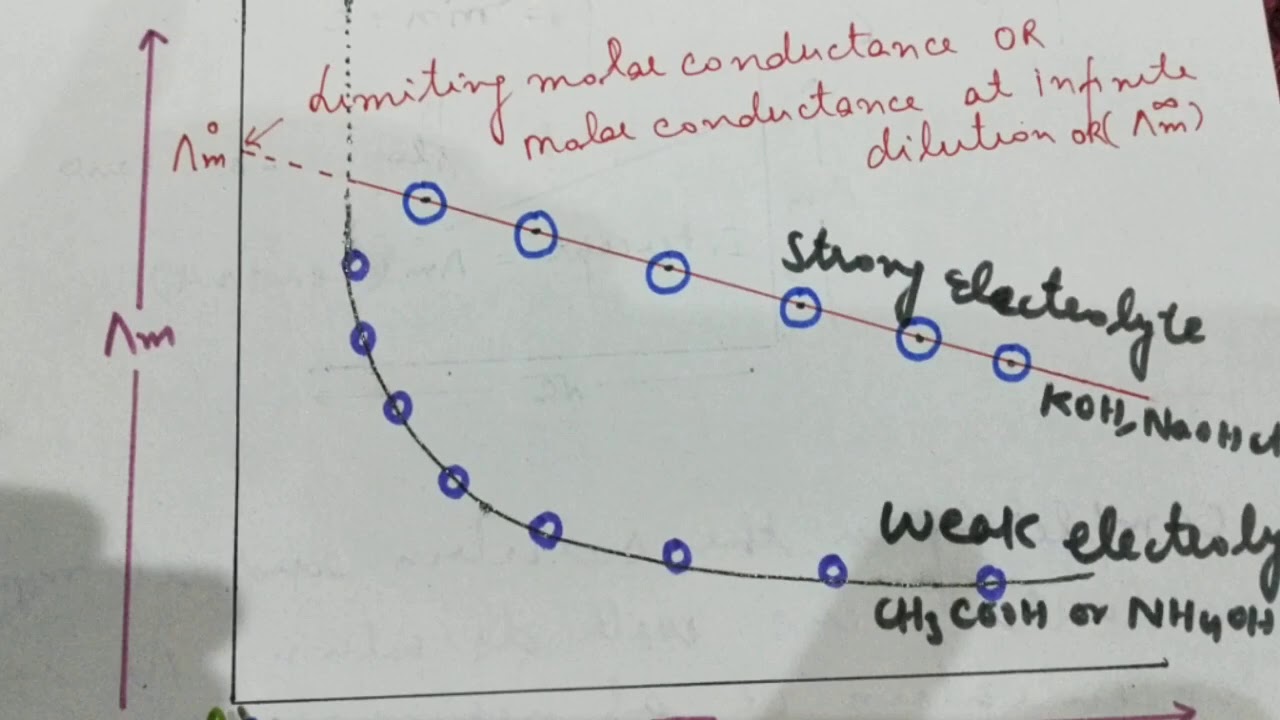 Limiting molar conductance OR
molar conductance at infinite
dilution OR( Λm∞)
Λm°
Strong Electrolyte
Λm
KOH, NaOH
Weak electroly
CH3COOH or NH4OH